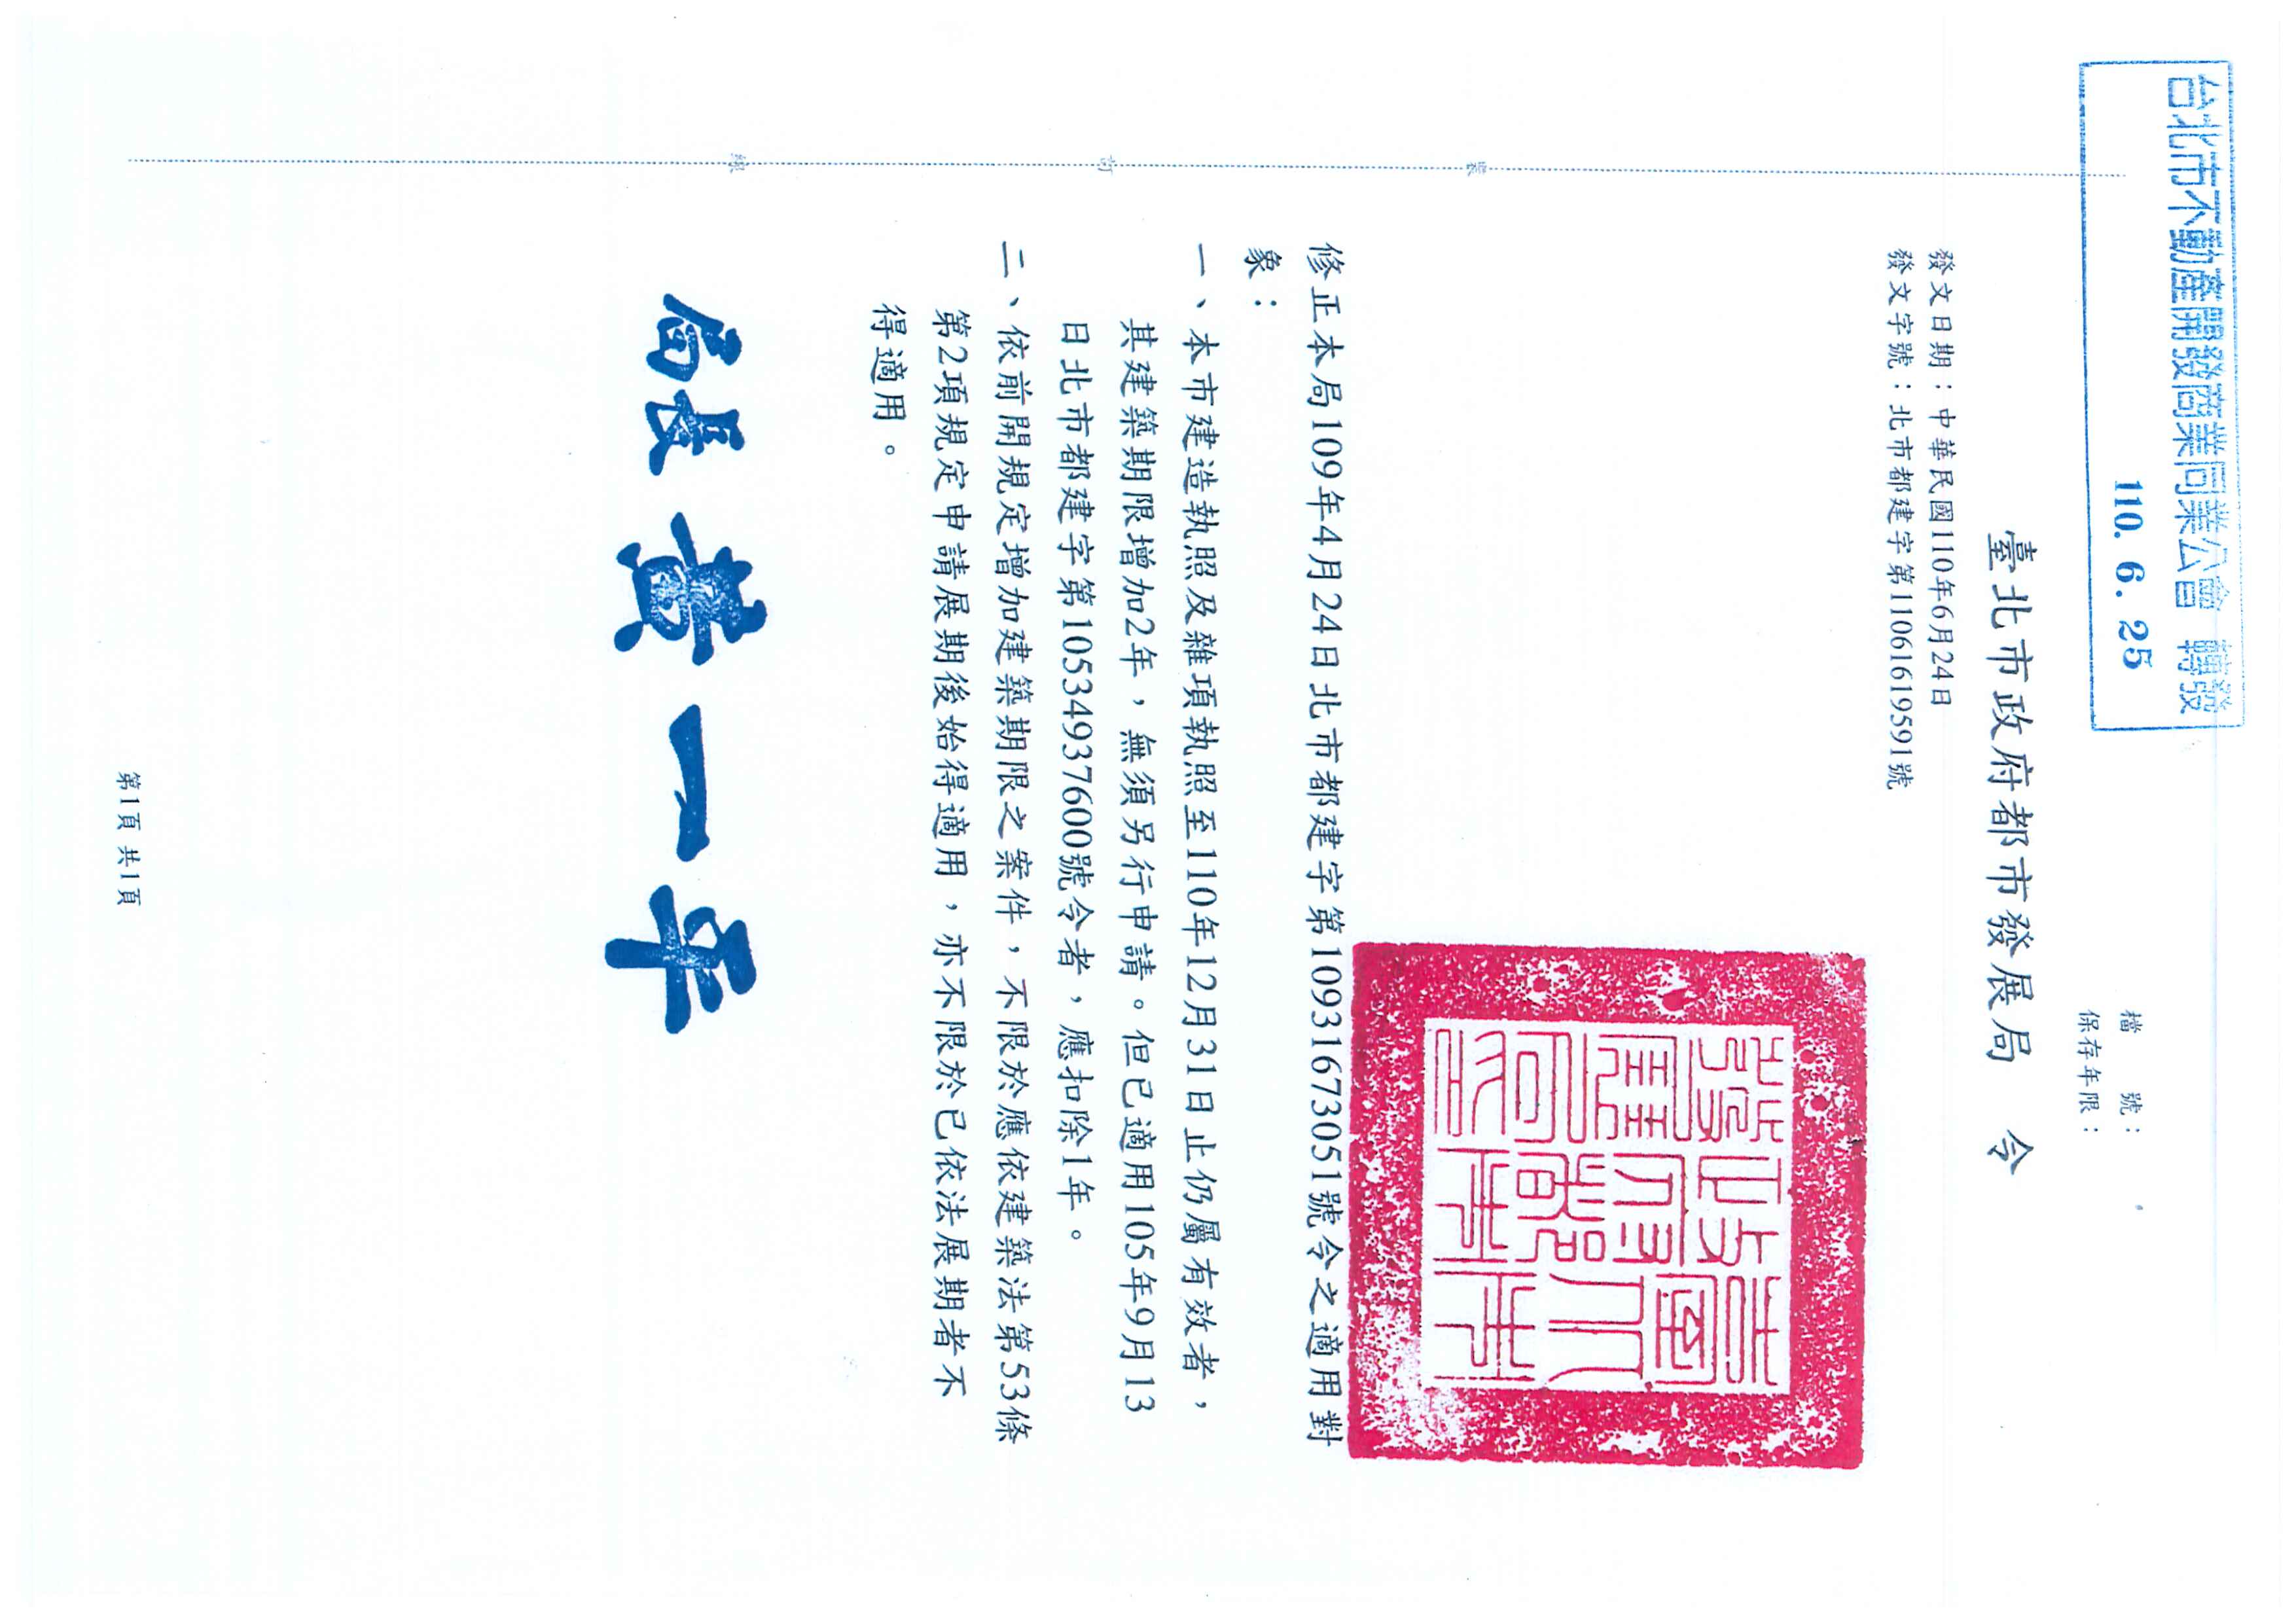 台北市不動產開發商業同業公會 轉發
110. 6. 25
檔　　號：
保存年限：
臺北市政府都市發展局　令
發文日期：中華民國110年6月24日
發文字號：北市都建字第11061619591號
修正本局109年4月24日北市都建字第10931673051號令之適用對
象：
一、本市建造執照及雜項執照至110年12月31日止仍屬有效者，
其建築期限增加2年，無須另行申請。但已適用105年9月13
日北市都建字第10534937600號令者，應扣除1年。
二、依前開規定增加建築期限之案件，不限於應依建築法第53條
第2項規定申請展期後始得適用，亦不限於已依法展期者不
得適用。
局長 黃一平
裝
訂
線
第1頁 共1頁